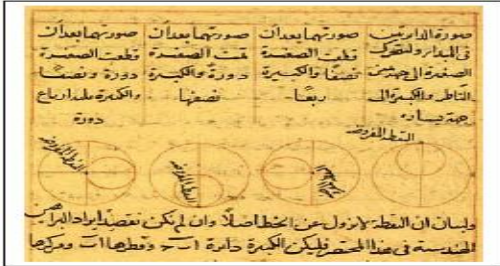 صورة الدائرتين
فى المبدا ولتتحرك
الصغيرة الى جهة يمين
الناظر والكبيرة الى
جهة يساره
صورتهما بعد أن
قطعت الصغيرة
نصفا والكبيرة
ربعا
صورتهما بعد أن
تمت الصغيرة
دورة والكبيرة
نصفها
صورتهما بعد أن
قطعت الصغيرة
دورة ونصفا
والكبيرة ثلثة ارباع
دورة
النقطة المفروضة
النقطة المفروضة
النقطة المفروضة
النقطة المفروضة
ولبيان ان النقطة لا تزول عن الخط اصلا وان لم نكن نقصد ايراد البراهين
الهندسية فى هذا المختصر فليكن الكبيرة دائرة وقطرها اب ومركزها